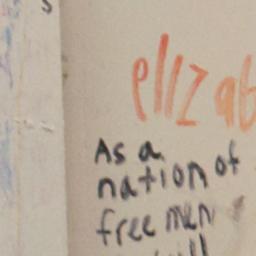 elizab
As a
nation of
free men